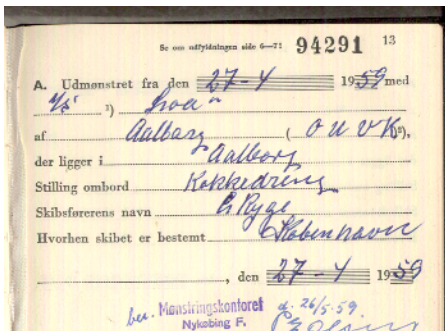 Se om udfyldningen side 6—7! 94291 13
A. Udmønstret fra den 27-4 1959 med
M/S ¹)
af Aalborg ( O U V K ²),
der ligger i Aalborg
Stilling ombord Kokkedreng
Skibsførerens navn Ryge
Hvorhen skibet er bestemt København
, den 27-4 1959
Mønstringskontoret d. 26/5-59.
Nykøbing F.